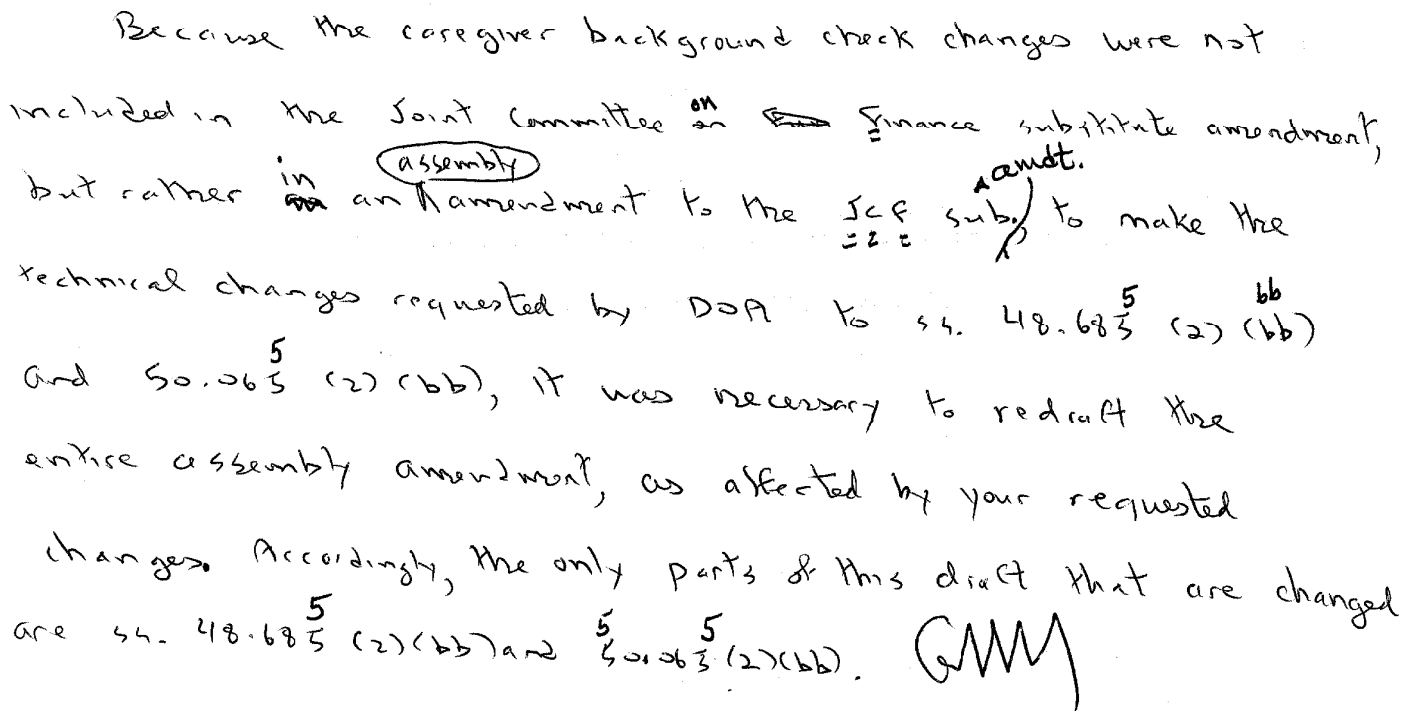 Because the caregiver background check changes were not
included in the Joint Committee on Finance substitute amendment,
but rather in an assembly amendment to the JCF sub. amdt. to make the
technical changes requested by DOA to ss. 48.685 (2) (bb)
and 50.065 (2) (bb), it was necessary to redraft the
entire assembly amendment, as affected by your requested
changes. Accordingly, the only parts of this draft that are changed
are ss. 48.685 (2) (bb) and 50.065 (2) (bb).